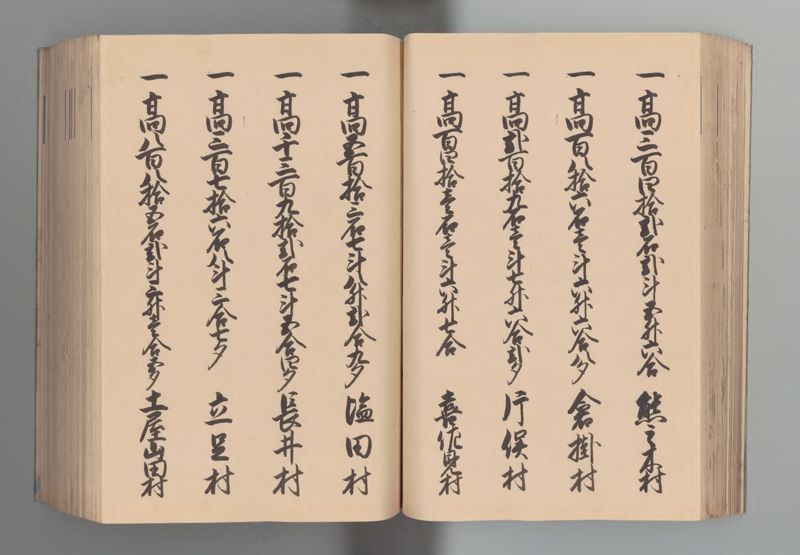 一 高三百四拾弐石弐斗五升六合 熊之木村
一 高百八拾六石壱斗六升六合八夕 倉掛村
一 高弐百拾九石壱斗七升六合弐夕 片俣村
一 高百四拾壱石壱斗六升七合 喜佐見村
一 高五百拾二石七斗八升弐合九夕 塩田村
一 高千三百九拾弐石七斗五合四夕 長井村
一 高三百七拾六石八斗二合七夕 立足村
一 高八百八拾五石弐斗二升壱合壱夕 土屋山田村